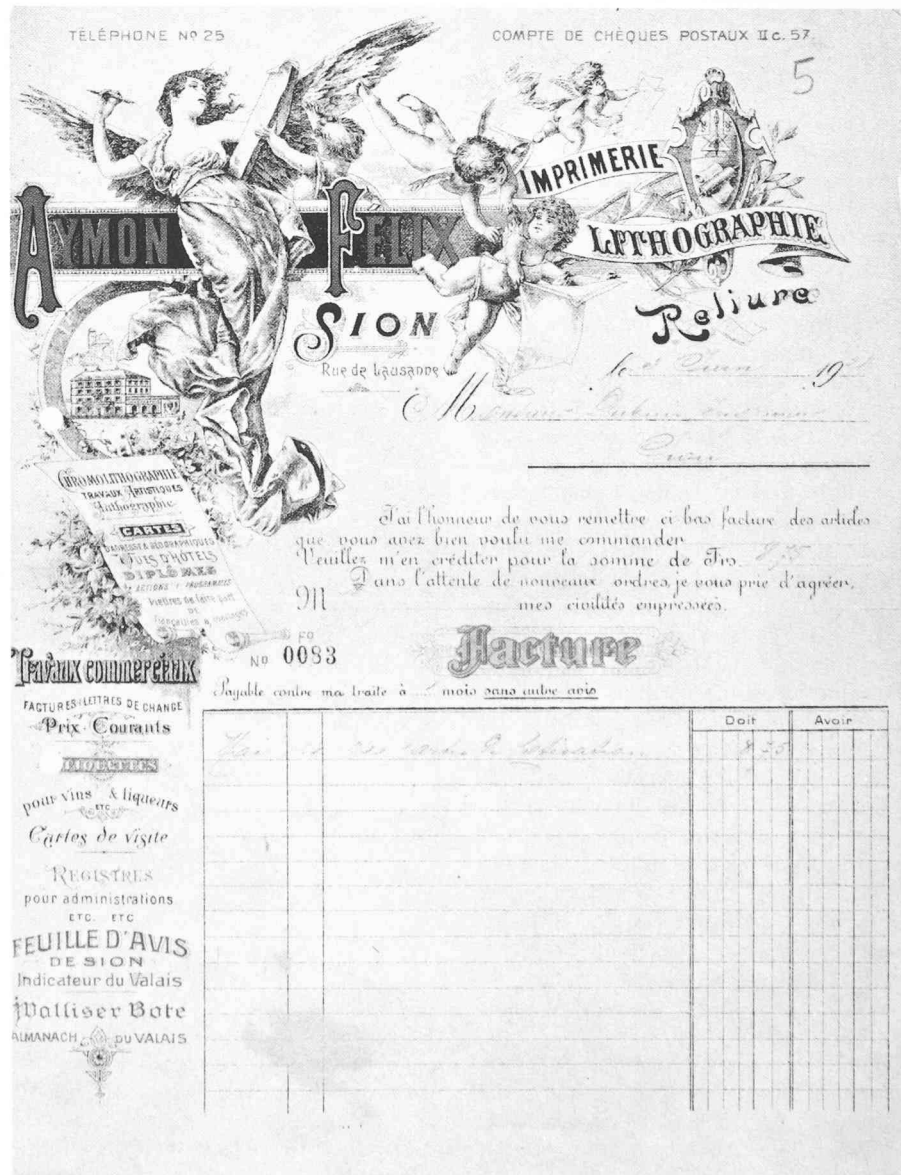 TÉLÉPHONE Nº 25
COMPTE DE CHÈQUES POSTAUX II c. 57.
5
IMPRIMERIE
LITHOGRAPHIE
Reliure
AYMON FÉLIX
SION
Rue de Lausanne
le Juin 19
M
Sion
CHROMOLITHOGRAPHIE
TRAVAUX ARTISTIQUES
Lithographie
CARTES
D'ADRESSE & GÉOGRAPHIQUES
VUES D'HÔTELS
DIPLÔMES
ACTIONS & PROGRAMMES
Lettres de faire part
DE
Fiançailles & mariages
J'ai l'honneur de vous remettre ci-bas facture des articles
que vous avez bien voulu me commander
Veuillez m'en créditer pour la somme de Frs. 8,35
Dans l'attente de nouveaux ordres, je vous prie d'agréer,
M mes civilités empressées.
FO
Nº 0083
Facture
Payable contre ma traite à mois sans autre avis
Doit Avoir
8 35
Travaux commerciaux
FACTURES & LETTRES DE CHANGE
Prix-Courants
ETIQUETTES
pour vins & liqueurs
ETC
Cartes de visite
REGISTRES
pour administrations
ETC. ETC
FEUILLE D'AVIS
DE SION
Indicateur du Valais
Walliser Bote
ALMANACH DU VALAIS